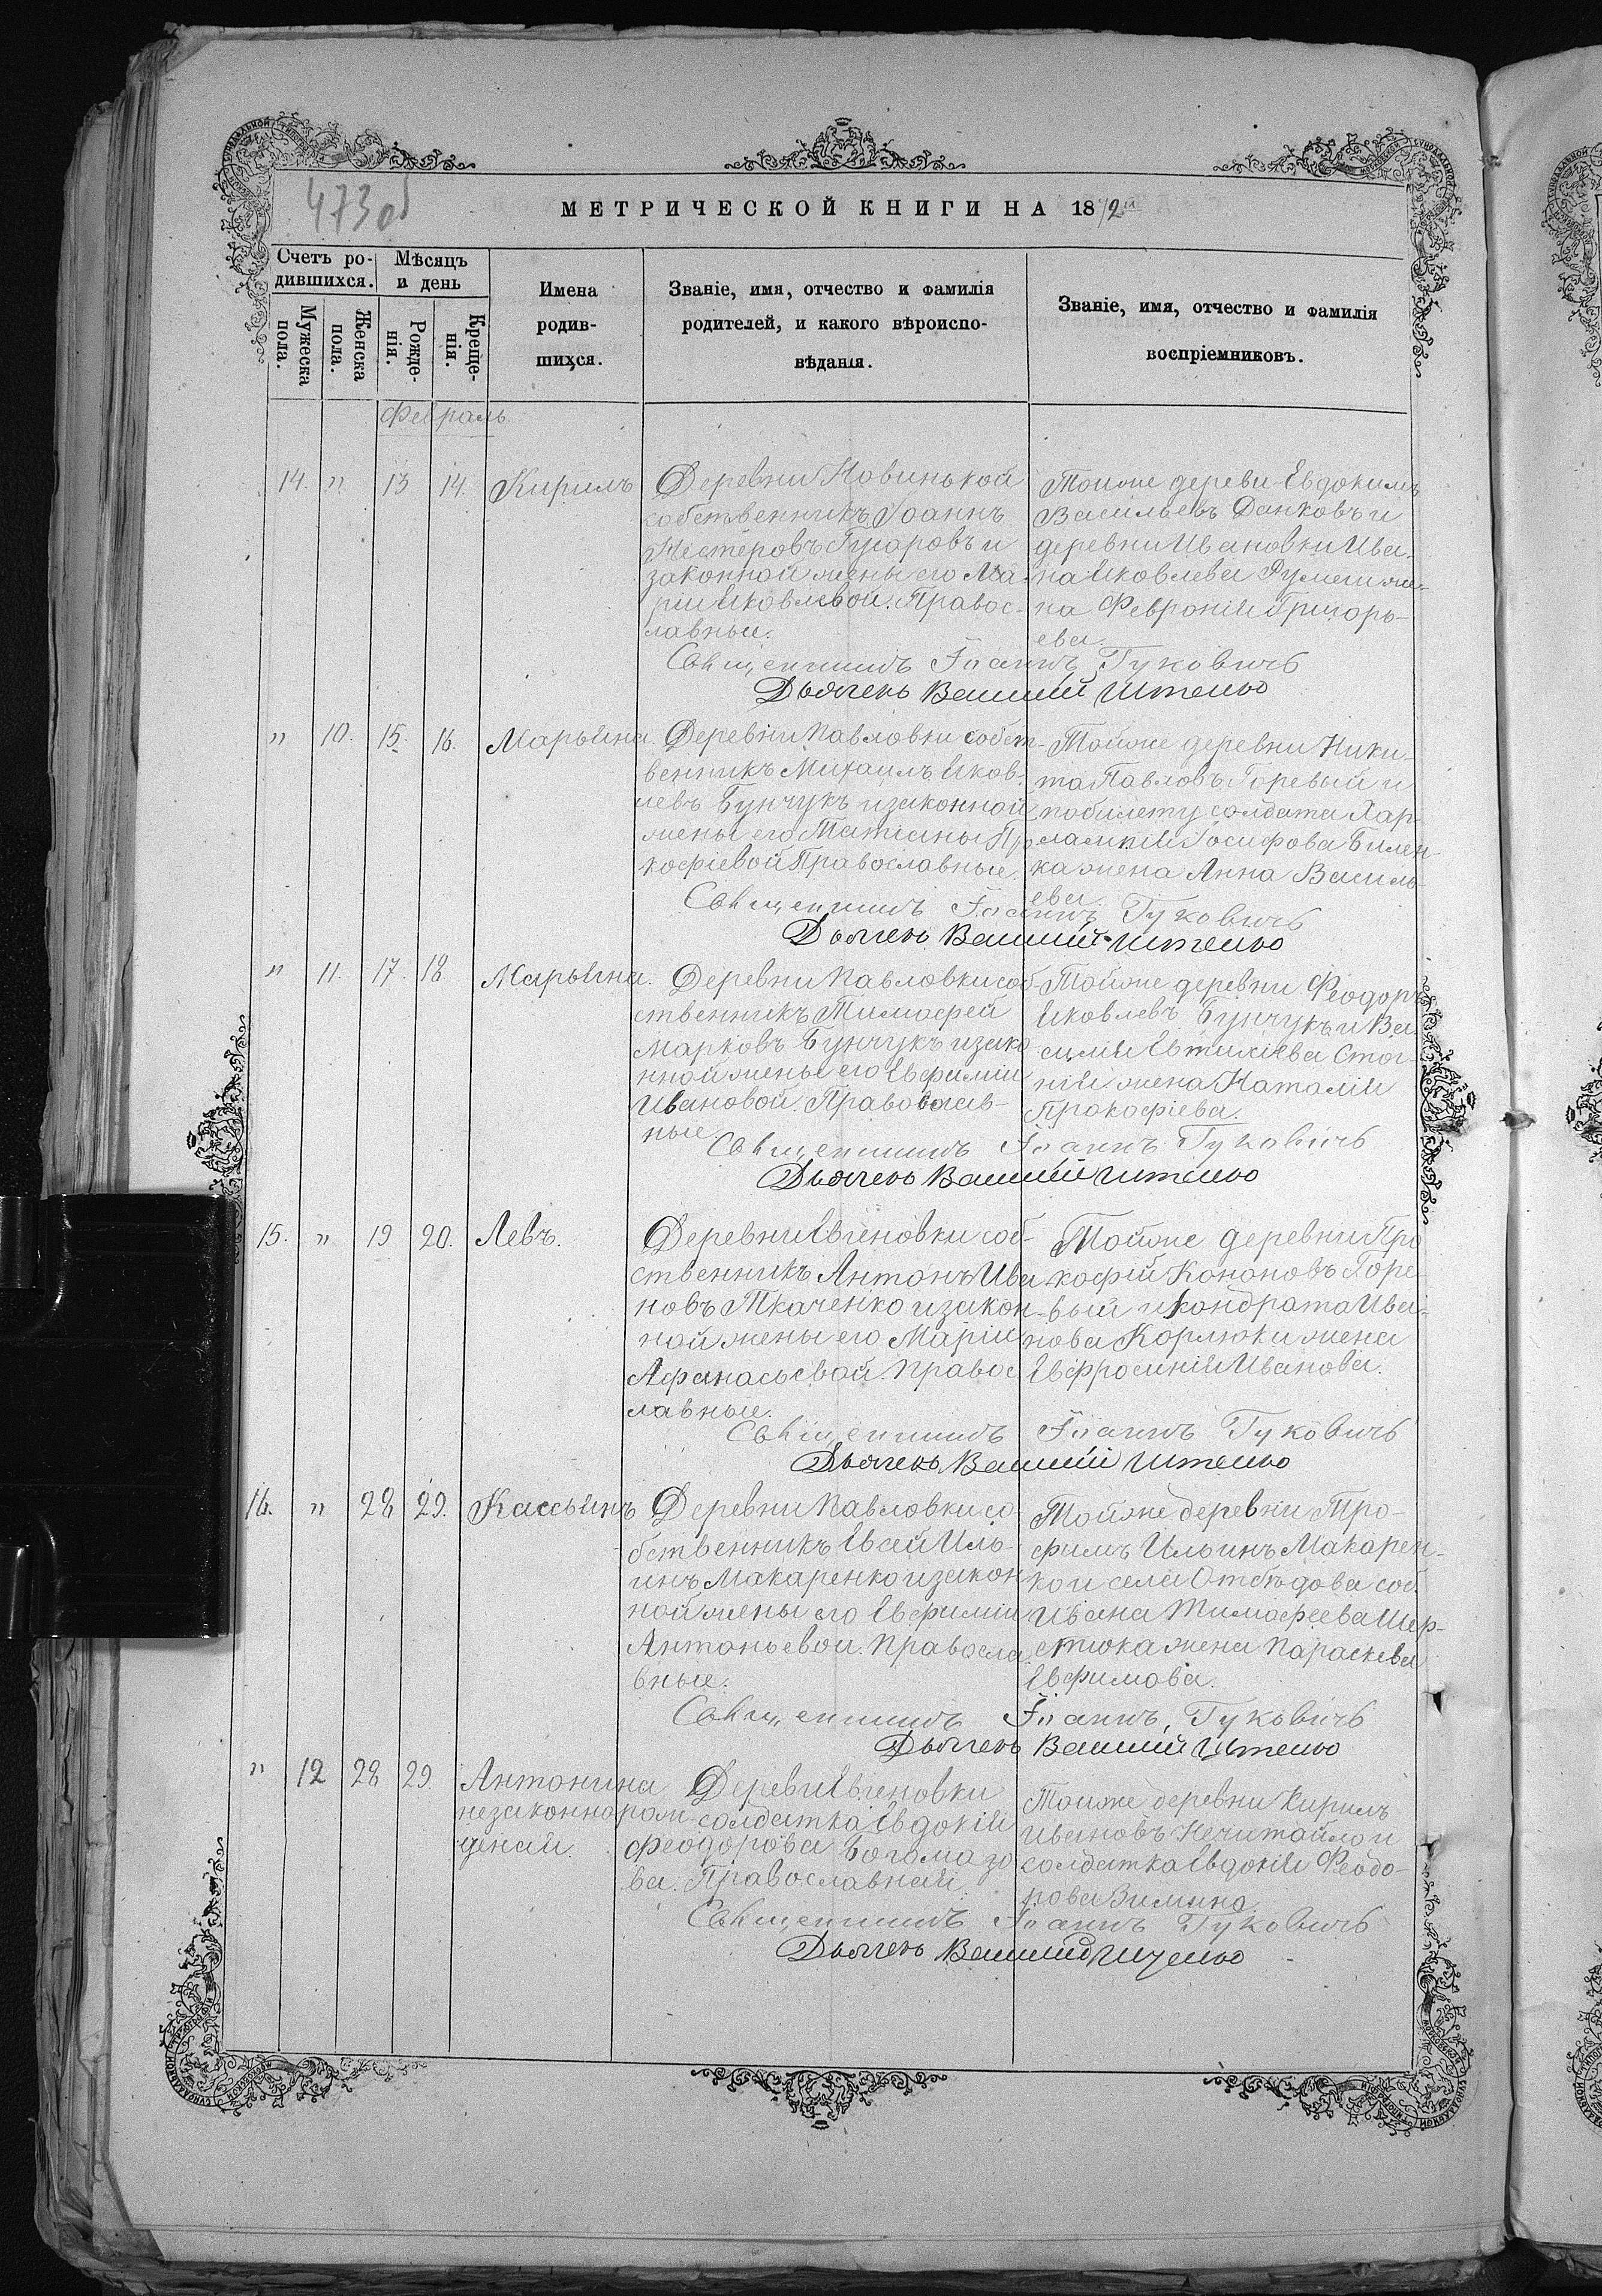 473об
МЕТРИЧЕСКОЙ КНИГИ НА 1872й
Счетъ ро-
дившихся.
Мѣсяцъ
и день
Мужеска
пола.
Женска
пола.
Рожде-
нія.
Креще-
нія.
Имена
родив-
шихся.
Званіе, имя, отчество и фамилія
родителей, и какого вѣроиспо-
вѣданія.
Званіе, имя, отчество и фамилія
воспріемниковъ.
Февраль
14. " 13 14. Кирилъ
Деревни Новинькой
собственникъ Іоаннъ
Нестеровъ Гусаровъ и
законной жены его Ма-
ріи Яковлевой. Правос-
лавные.
Тойже дереви Евдокимъ
Васильевъ Данковъ и
деревни Ивановки Ива-
на Яковлева же-
на Февронія Григорь-
ева.
Священникъ Іоаннъ Гуковичъ
Дьячекъ Василій
" 10. 15. 16. Марьина.
Деревни Павловки собст-
венникъ Михаилъ Яков-
левъ Бунчукъ изаконной
жены его Татіаны Про
кофіевой Православные.
Тойже деревни Ники-
та Павловъ Горевый и
побилету солдата Хар-
лампія Іосифова Билен-
ка жена Анна Василь-
ева.
Священникъ Іоаннъ Гуковичъ
Дьячекъ Василій
" 11. 17. 18. Марьина.
Деревни Павловки соб-
ственникъ Тимофей
Марковъ Бунчукъ изако-
нной жены его Евфиміи
Ивановой. Православ-
ные
Тойже деревни Феодоръ
Яковлевъ Бунчукъ и Ва
силія Евтихіева Стог-
нія жена Наталія
Прокофіева.
Священникъ Іоаннъ Гуковичъ
Дьячекъ Василій
15. " 19 20. Левъ.
Деревни Евгеновки соб-
ственникъ Антонъ Ива
новъ Ткаченко изакон-
ной жены его Маріи
Афанасьевой. Правос
лавные.
Тойже деревни Про
кофій Кононовъ Горе-
вый и Кондрата Ива-
нова Корлюки жена
Евфросинія Иванова.
Священникъ Іоаннъ Гуковичъ
Дьячекъ Василій
16. " 28 29. Кассьинъ
Деревни Павловки со-
бственникъ Евсей Иль-
инъ Макаренко изакон
ной жены его Евфиміи
Антоньевой. Правосла
вные.
Тойже деревни Тро-
фимъ Ильинъ Макарен-
ко и села Отбѣдова соб.
Ивана Тимофеева Шер-
стюка жена Параскева
Евфимова.
Священникъ Іоаннъ Гуковичъ
Дьячекъ Василій
" 12 28 29. Антонина
незаконнорож-
деная.
Деревни Евгеновки
солдатка Евдокія
Феодорова Богомазо
ва. Православная
Тойже деревни Кирилъ
Ивановъ Нечитайло и
солдатка Евдокія Феодо-
рова Зимина
Священникъ Іоаннъ Гуковичъ
Дьячекъ Василій